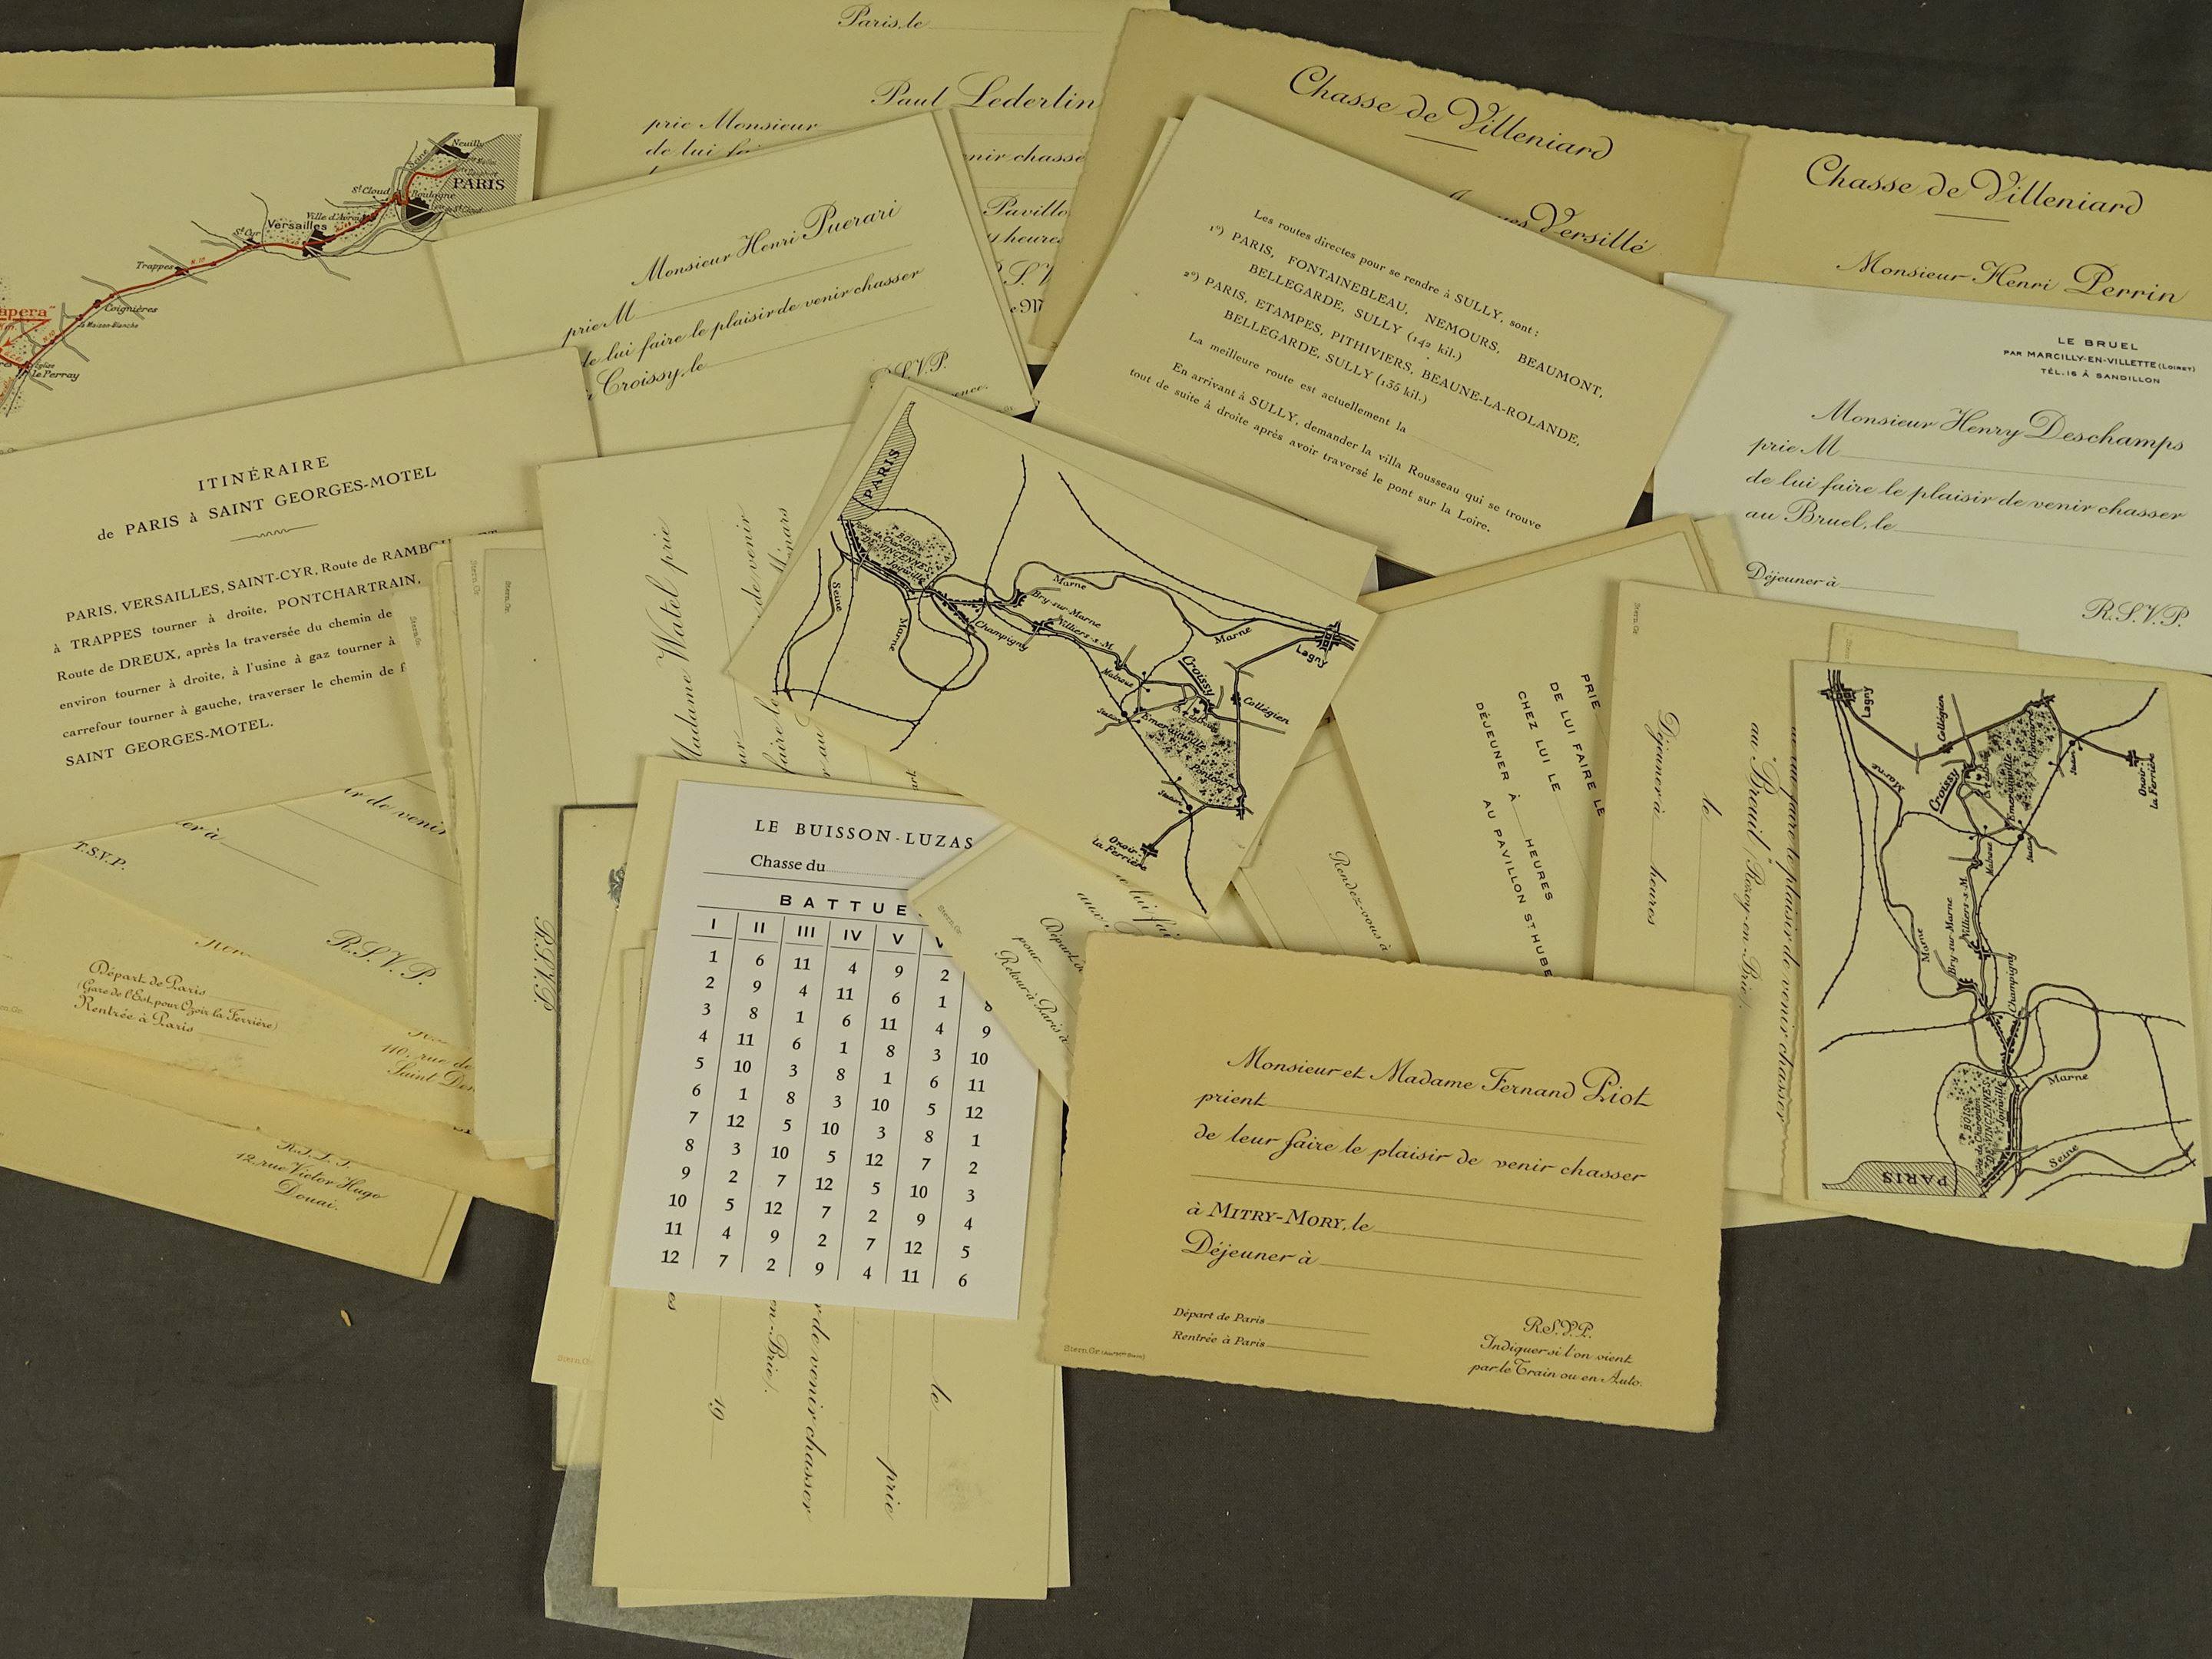 Paris, le
Paul Lederlin
prie Monsieur
de lui
venir chasse
Pavillo
heures
Chasse de Villeniard
Versillé
Chasse de Villeniard
Monsieur Henri Perrin
Neuilly
PARIS
St Cloud
Boulogne
Ville d'Avray
Versailles
St Cyr
Trappes
Coignières
la Maison-Blanche
le Perray
Monsieur Henri Puerari
prie M
de lui faire le plaisir de venir chasser
Croissy, le
R.S.V.P.
Les routes directes pour se rendre à SULLY, sont :
1º) PARIS, FONTAINEBLEAU, NEMOURS, BEAUMONT,
BELLEGARDE, SULLY (142 kil.)
2º) PARIS, ETAMPES, PITHIVIERS, BEAUNE-LA-ROLANDE,
BELLEGARDE, SULLY (135 kil.)
La meilleure route est actuellement la
En arrivant à SULLY, demander la villa Rousseau qui se trouve
tout de suite à droite après avoir traversé le pont sur la Loire.
LE BRUEL
PAR MARCILLY-EN-VILLETTE (LOIRET)
TÉL. 16 À SANDILLON
Monsieur Henry Deschamps
prie M
de lui faire le plaisir de venir chasser
au Bruel, le
Déjeuner à
R.S.V.P.
ITINÉRAIRE
de PARIS à SAINT GEORGES-MOTEL
PARIS, VERSAILLES, SAINT-CYR, Route de RAMBOU
à TRAPPES tourner à droite, PONTCHARTRAIN,
Route de DREUX, après la traversée du chemin de
environ tourner à droite, à l'usine à gaz tourner à
carrefour tourner à gauche, traverser le chemin de f
SAINT GEORGES-MOTEL.
de venir
T.S.V.P.
R.S.V.P.
Départ de Paris
(Gare de l'Est, pour Ozoir la Ferrière)
Rentrée à Paris
110, rue de
Saint Den
12, rue Victor Hugo
Douai.
Stern.Gr
Stern.Gr
Stern.Gr
Madame Watel prie
de venir
faire le
R.S.V.P.
PARIS
BOIS
DE VINCENNES
Joinville
Seine
Marne
Champigny
Bry-sur-Marne
Villiers-s-M
Marne
Marne
Lagny
Malnoue
Croissy
Collégien
Emerainville
Pontcarré
Ozoir-
la Ferrière
LE BUISSON-LUZAS
Chasse du
BATTUE
I II III IV V
1 6 11 4 9 2
2 9 4 11 6 1 8
3 8 1 6 11 4 9
4 11 6 1 8 3 10
5 10 3 8 1 6 11
6 1 8 3 10 5 12
7 12 5 10 3 8 1
8 3 10 5 12 7 2
9 2 7 12 5 10 3
10 5 12 7 2 9 4
11 4 9 2 7 12 5
12 7 2 9 4 11 6
Stern.Gr
19
en-Brie).
de venir chasser
prie
le
Stern.Gr
Départ de
pour
Retour à Paris à
Rendez-vous à
PRIE
DE LUI FAIRE LE
CHEZ LUI LE
DÉJEUNER À HEURES
AU PAVILLON ST HUBE
Stern.Gr
Déjeuner à heures
le
au "Breuil" (Rozoy-en-Brie).
faire le plaisir de venir chasser
Lagny
Collégien
Croissy
Marne
Emerainville
Pontcarré
Ozoir-
la Ferrière
Malnoue
Villiers-s-M
Bry-sur-Marne
Marne
Champigny
BOIS
DE VINCENNES
Joinville
Marne
Seine
PARIS
Monsieur et Madame Fernand Piot
prient
de leur faire le plaisir de venir chasser
à MITRY-MORY, le
Déjeuner à
Départ de Paris
Rentrée à Paris
R.S.V.P.
Indiquer si l'on vient
par le Train ou en Auto.
Stern.Gr